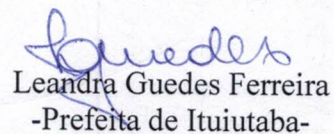 Lguedes
Leandra Guedes Ferreira
-Prefeita de Ituiutaba-